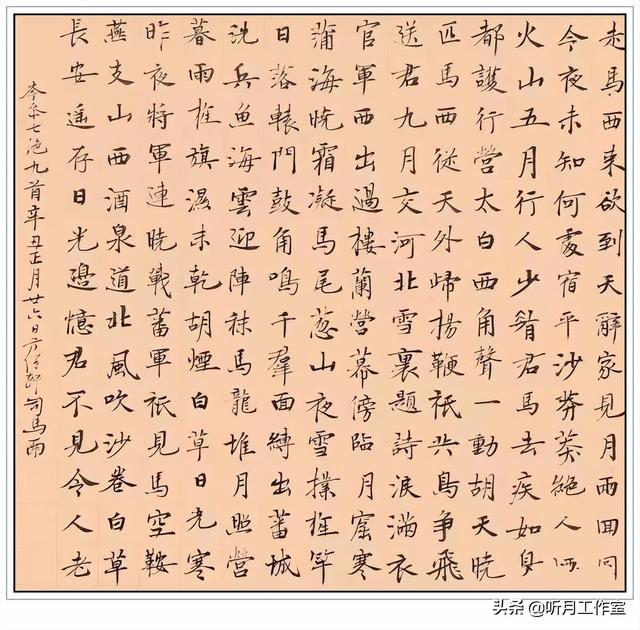 走馬西來欲到天辭家見月兩回圓
今夜未知何處宿平沙莽莽絕人煙
火山五月行人少看君馬去疾如鳥
都護行營太白西角聲一動胡天曉
匹馬西從天外歸揚鞭祇共鳥爭飛
送君九月交河北雪裏題詩淚滿衣
官軍西出過樓蘭營幕傍臨月窟寒
蒲海曉霜凝馬尾葱山夜雪撲旌竿
日落轅門鼓角鳴千羣面縛出蕃城
洗兵魚海雲迎陣秣馬龍堆月照營
暮雨旌旗濕未乾胡煙白草日光寒
昨夜將軍連曉戰蕃軍祇見馬空鞍
燕支山西酒泉道北風吹沙卷白草
長安遙在日光邊憶君不見令人老
岑參七絕九首辛丑正月廿六日司馬雨
头条 @听月工作室